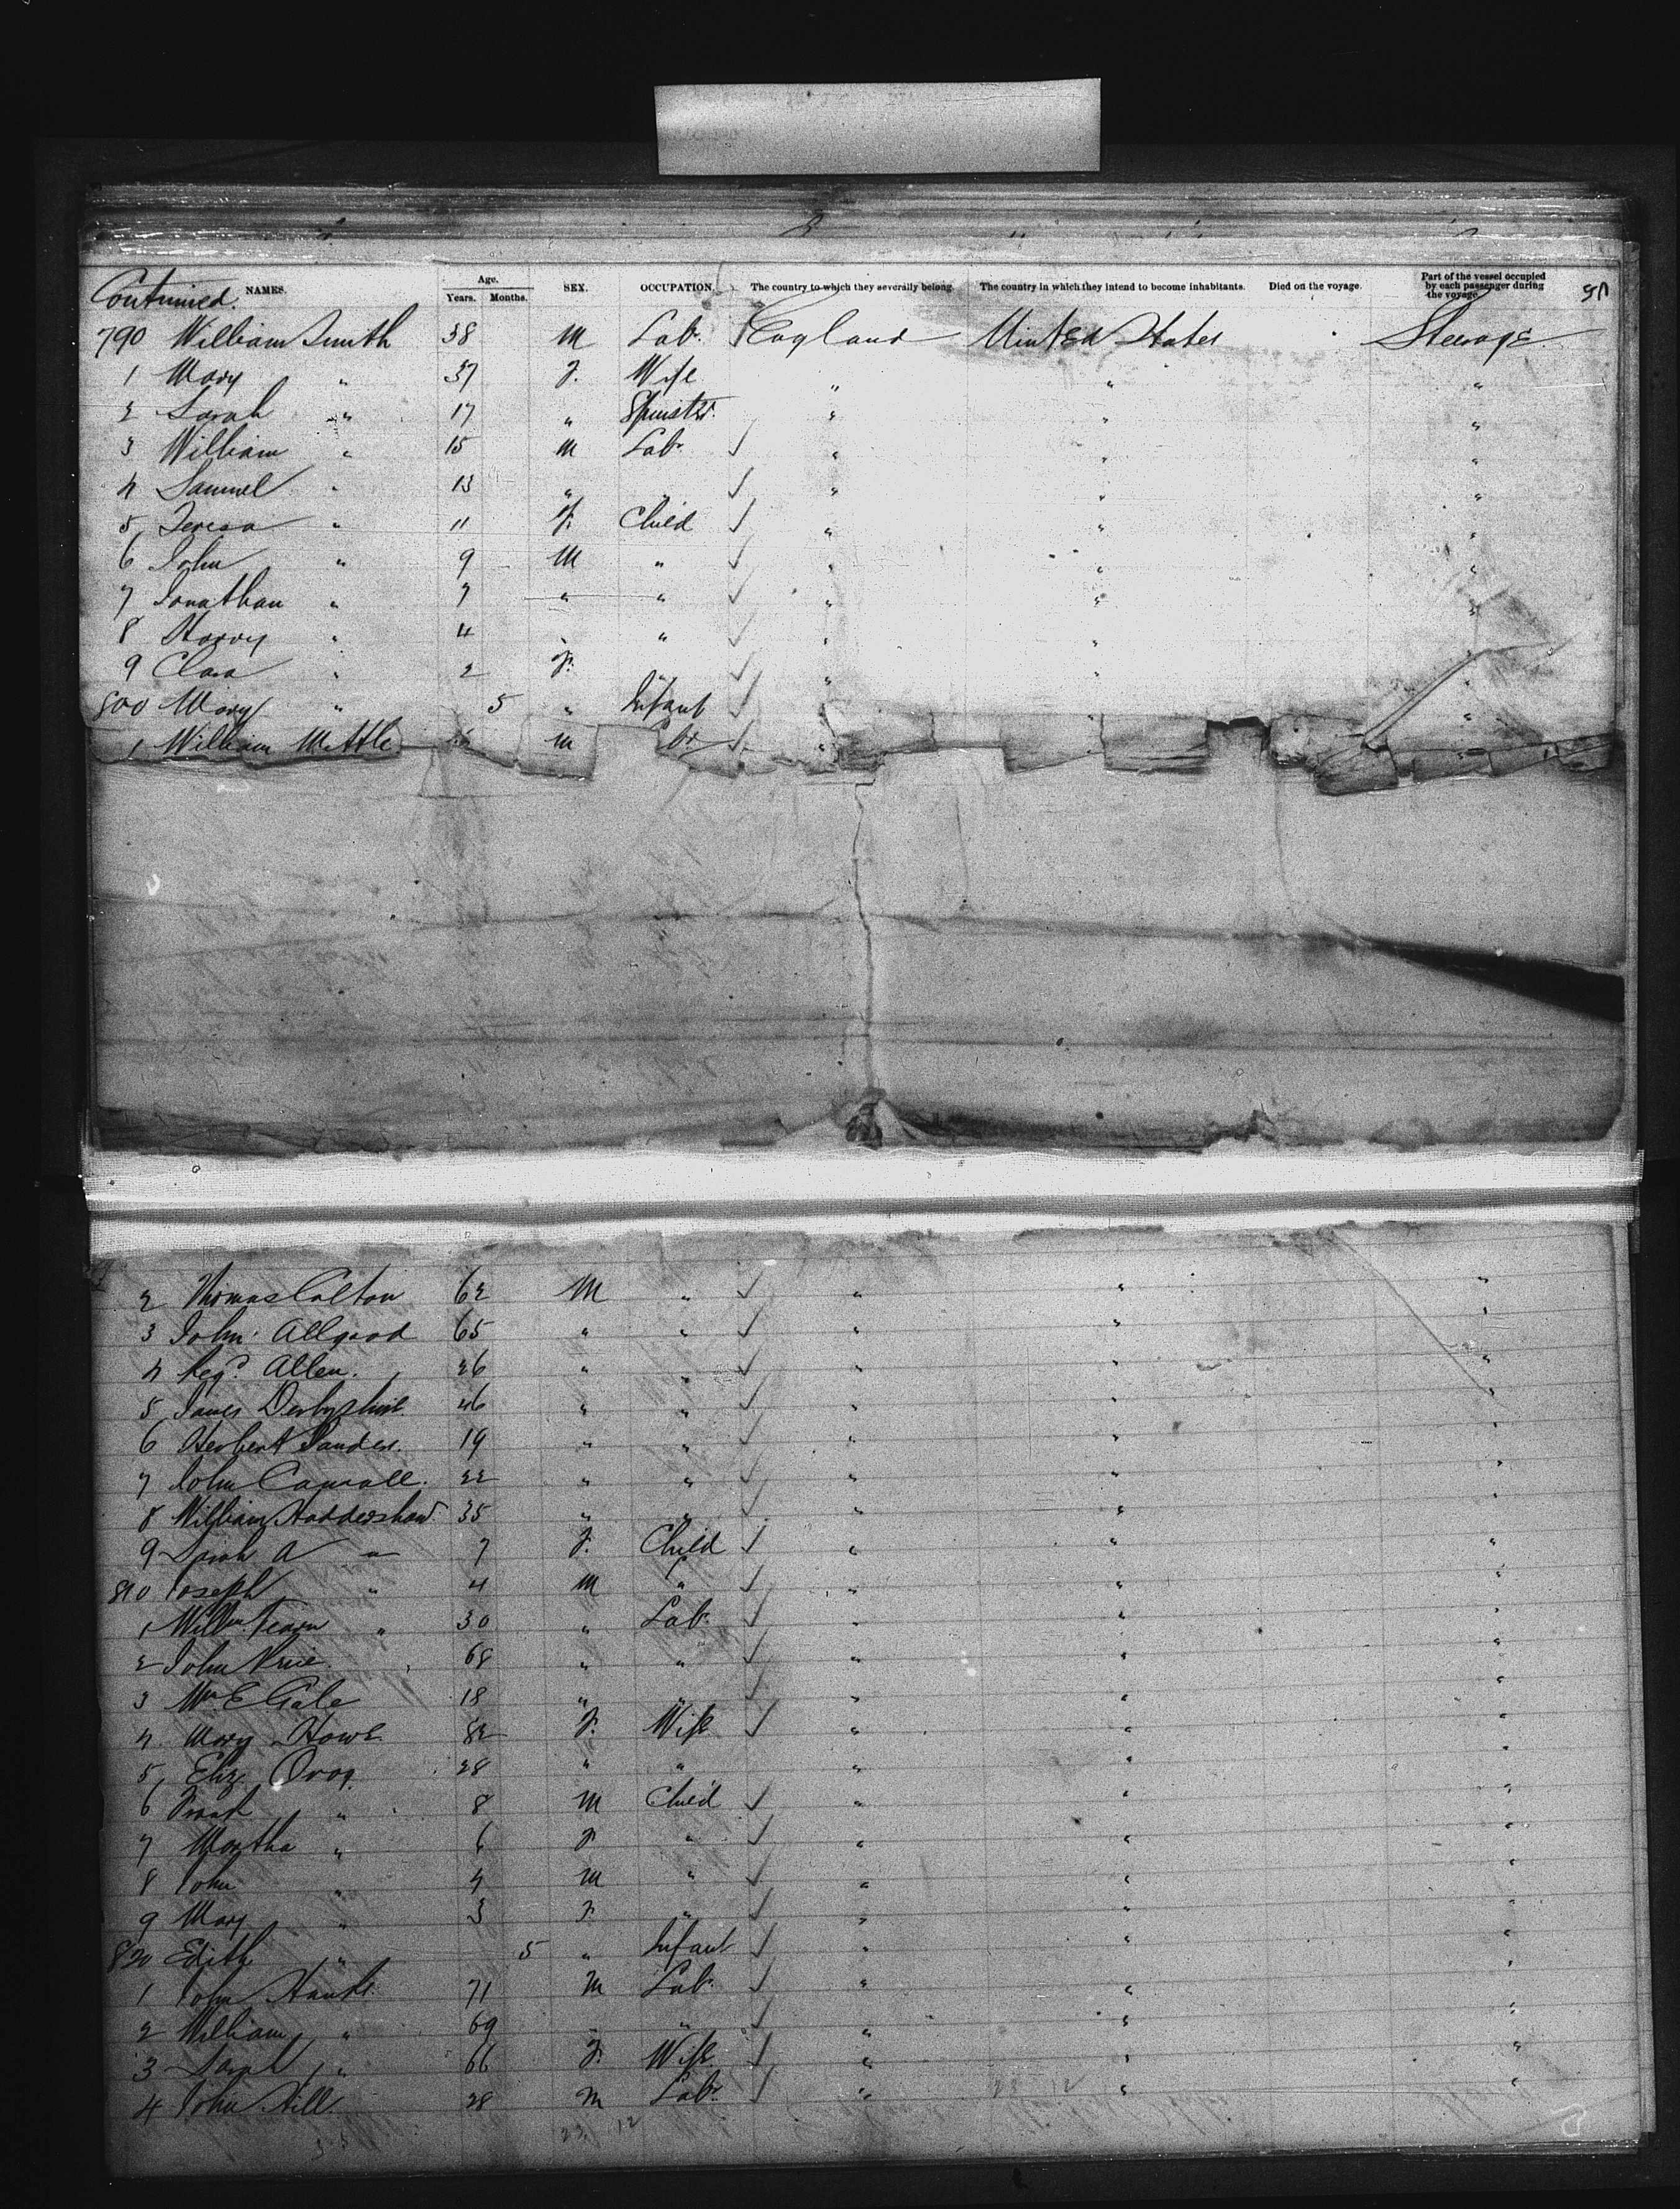 Continued. NAMES. Age. Years. Months. SEX. OCCUPATION. The country to which they severally belong. The country in which they intend to become inhabitants. Died on the voyage. Part of the vessel occupied by each passenger during the voyage.
790 William Smith 38 M Lab. England United States Steerage
1 Mary " 37 F. Wife " " "
2 Sarah " 17 " Spinster " " "
3 William " 15 M Lab. " " "
4 Samuel " 13 " " " " "
5 Teresa " 11 F. Child " " "
6 John " 9 M " " " "
7 Jonathan " 7 " " " " "
8 Harry " 4 " " " " "
9 Clara " 2 F. " " " "
800 Mary " 5 " Infant " " "
1 William M
2 Thomas Colton 62 M " " " "
3 John Allgood 65 " " " " "
4 Regd. Allen. 26 " " " " "
5 James Derbyshire 46 " " " " "
6 Herbert Sanders. 19 " " " " "
7 John 22 " " " " "
8 William Haddershaw 35 " " " " "
9 Sarah A " 7 F. Child " " "
810 Joseph " 4 M " " " "
1 Willm Fearn " 30 " Lab. " " "
2 John 68 " " " " "
3 Wm E Gale 18 " " " " "
4 Mary Howe 82 F. Wife " " "
5 Eliz. 28 " " " " "
6 Frank " 8 M Child " " "
7 Martha " 6 F " " " "
8 John " 4 M " " " "
9 Mary " 3 F. " " " "
820 Edith " 5 " Infant " " "
1 John 71 M Lab. " " "
2 William " 69 " " " " "
3 Sarah " 66 F. Wife " " "
4 John Hill. 28 M Lab. " " "